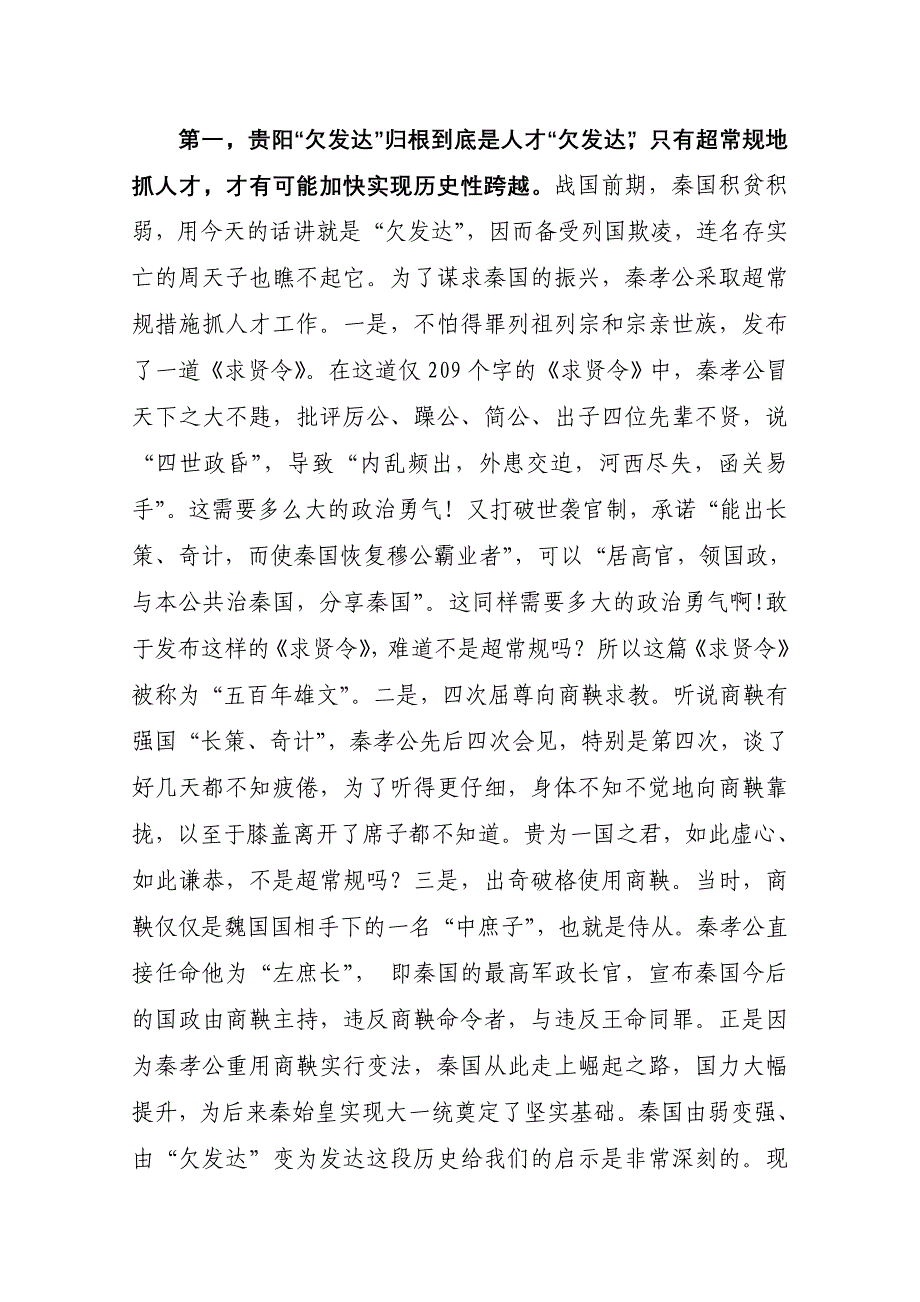 第一，贵阳“欠发达”归根到底是人才“欠发达”，只有超常规地
抓人才，才有可能加快实现历史性跨越。战国前期，秦国积贫积
弱，用今天的话讲就是“欠发达”，因而备受列国欺凌，连名存实
亡的周天子也瞧不起它。为了谋求秦国的振兴，秦孝公采取超常
规措施抓人才工作。一是，不怕得罪列祖列宗和宗亲世族，发布
了一道《求贤令》。在这道仅 209 个字的《求贤令》中，秦孝公冒
天下之大不韪，批评厉公、躁公、简公、出子四位先辈不贤，说
“四世政昏”，导致“内乱频出，外患交迫，河西尽失，函关易
手”。这需要多么大的政治勇气！又打破世袭官制，承诺“能出长
策、奇计，而使秦国恢复穆公霸业者”，可以“居高官，领国政，
与本公共治秦国，分享秦国”。这同样需要多大的政治勇气啊！敢
于发布这样的《求贤令》，难道不是超常规吗？所以这篇《求贤令》
被称为“五百年雄文”。二是，四次屈尊向商鞅求教。听说商鞅有
强国“长策、奇计”，秦孝公先后四次会见，特别是第四次，谈了
好几天都不知疲倦，为了听得更仔细，身体不知不觉地向商鞅靠
拢，以至于膝盖离开了席子都不知道。贵为一国之君，如此虚心、
如此谦恭，不是超常规吗？三是，出奇破格使用商鞅。当时，商
鞅仅仅是魏国国相手下的一名“中庶子”，也就是侍从。秦孝公直
接任命他为“左庶长”， 即秦国的最高军政长官，宣布秦国今后
的国政由商鞅主持，违反商鞅命令者，与违反王命同罪。正是因
为秦孝公重用商鞅实行变法，秦国从此走上崛起之路，国力大幅
提升，为后来秦始皇实现大一统奠定了坚实基础。秦国由弱变强、
由“欠发达”变为发达这段历史给我们的启示是非常深刻的。现